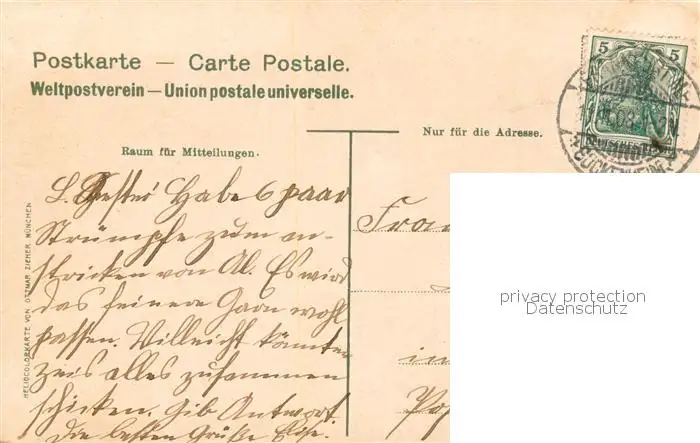 Postkarte — Carte Postale.
Weltpostverein — Union postale universelle.
Nur für die Adresse.
Raum für Mitteilungen.
5 5
FRANKFURT
BOCKENHEIM
HELIOCOLORKARTE VON OTTMAR ZIEHER, MÜNCHEN
L. Habe 6 paar
Strümpfe zum an-
stricken von Al. Es wird
das feinere Garn wohl
passen. Villeicht könnten
alles zusammen
schicken. Gib Antwort
die besten Grüße
Frau
in
privacy protection
Datenschutz